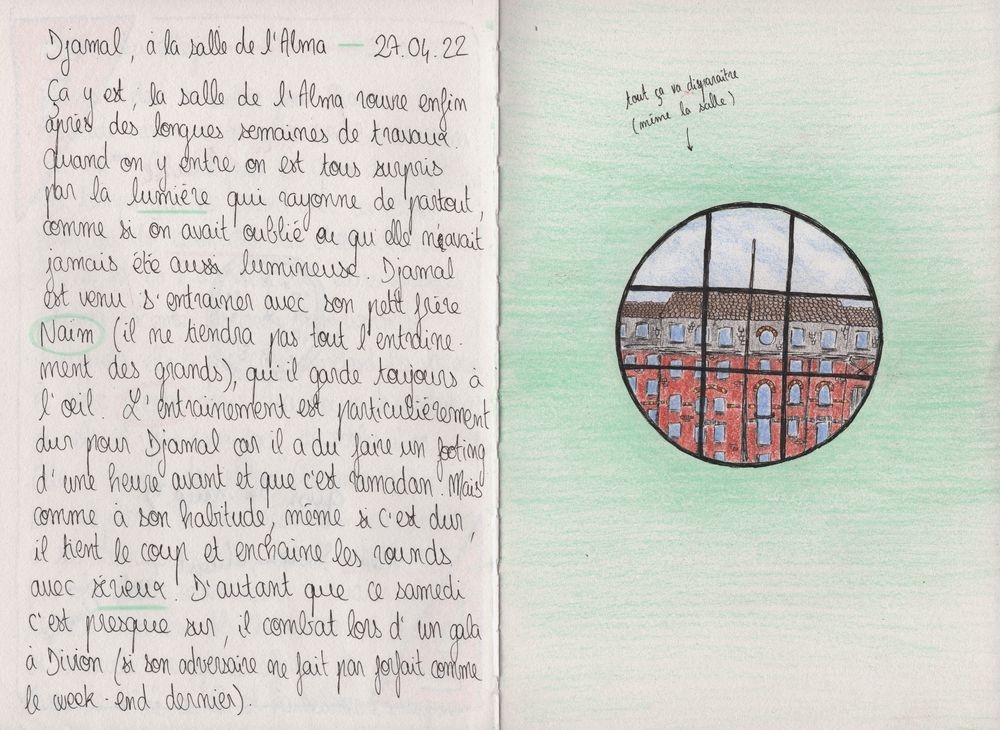 Djamal, à la salle de l'Alma — 27.04.22
Ça y est, la salle de l'Alma rouvre enfin
après des longues semaines de travaux.
Quand on y entre on est tous surpris
par la lumière qui rayonne de partout,
comme si on avait oublié ou qu'elle n'avait
jamais été aussi lumineuse. Djamal
est venu s'entrainer avec son petit frère
Naïm (il ne tiendra pas tout l'entraine-
ment des grands), qu'il garde toujours à
l'oeil. L'entrainement est particulièrement
dur pour Djamal car il a du faire un footing
d'une heure avant et que c'est ramadan. Mais
comme à son habitude, même si c'est dur,
il tient le coup et enchaine les rounds
avec sérieux. D'autant que ce samedi
c'est presque sur, il combat lors d'un gala
à Divion (si son adversaire ne fait par forfait comme
le week-end dernier).
tout ça va disparaître
(même la salle)